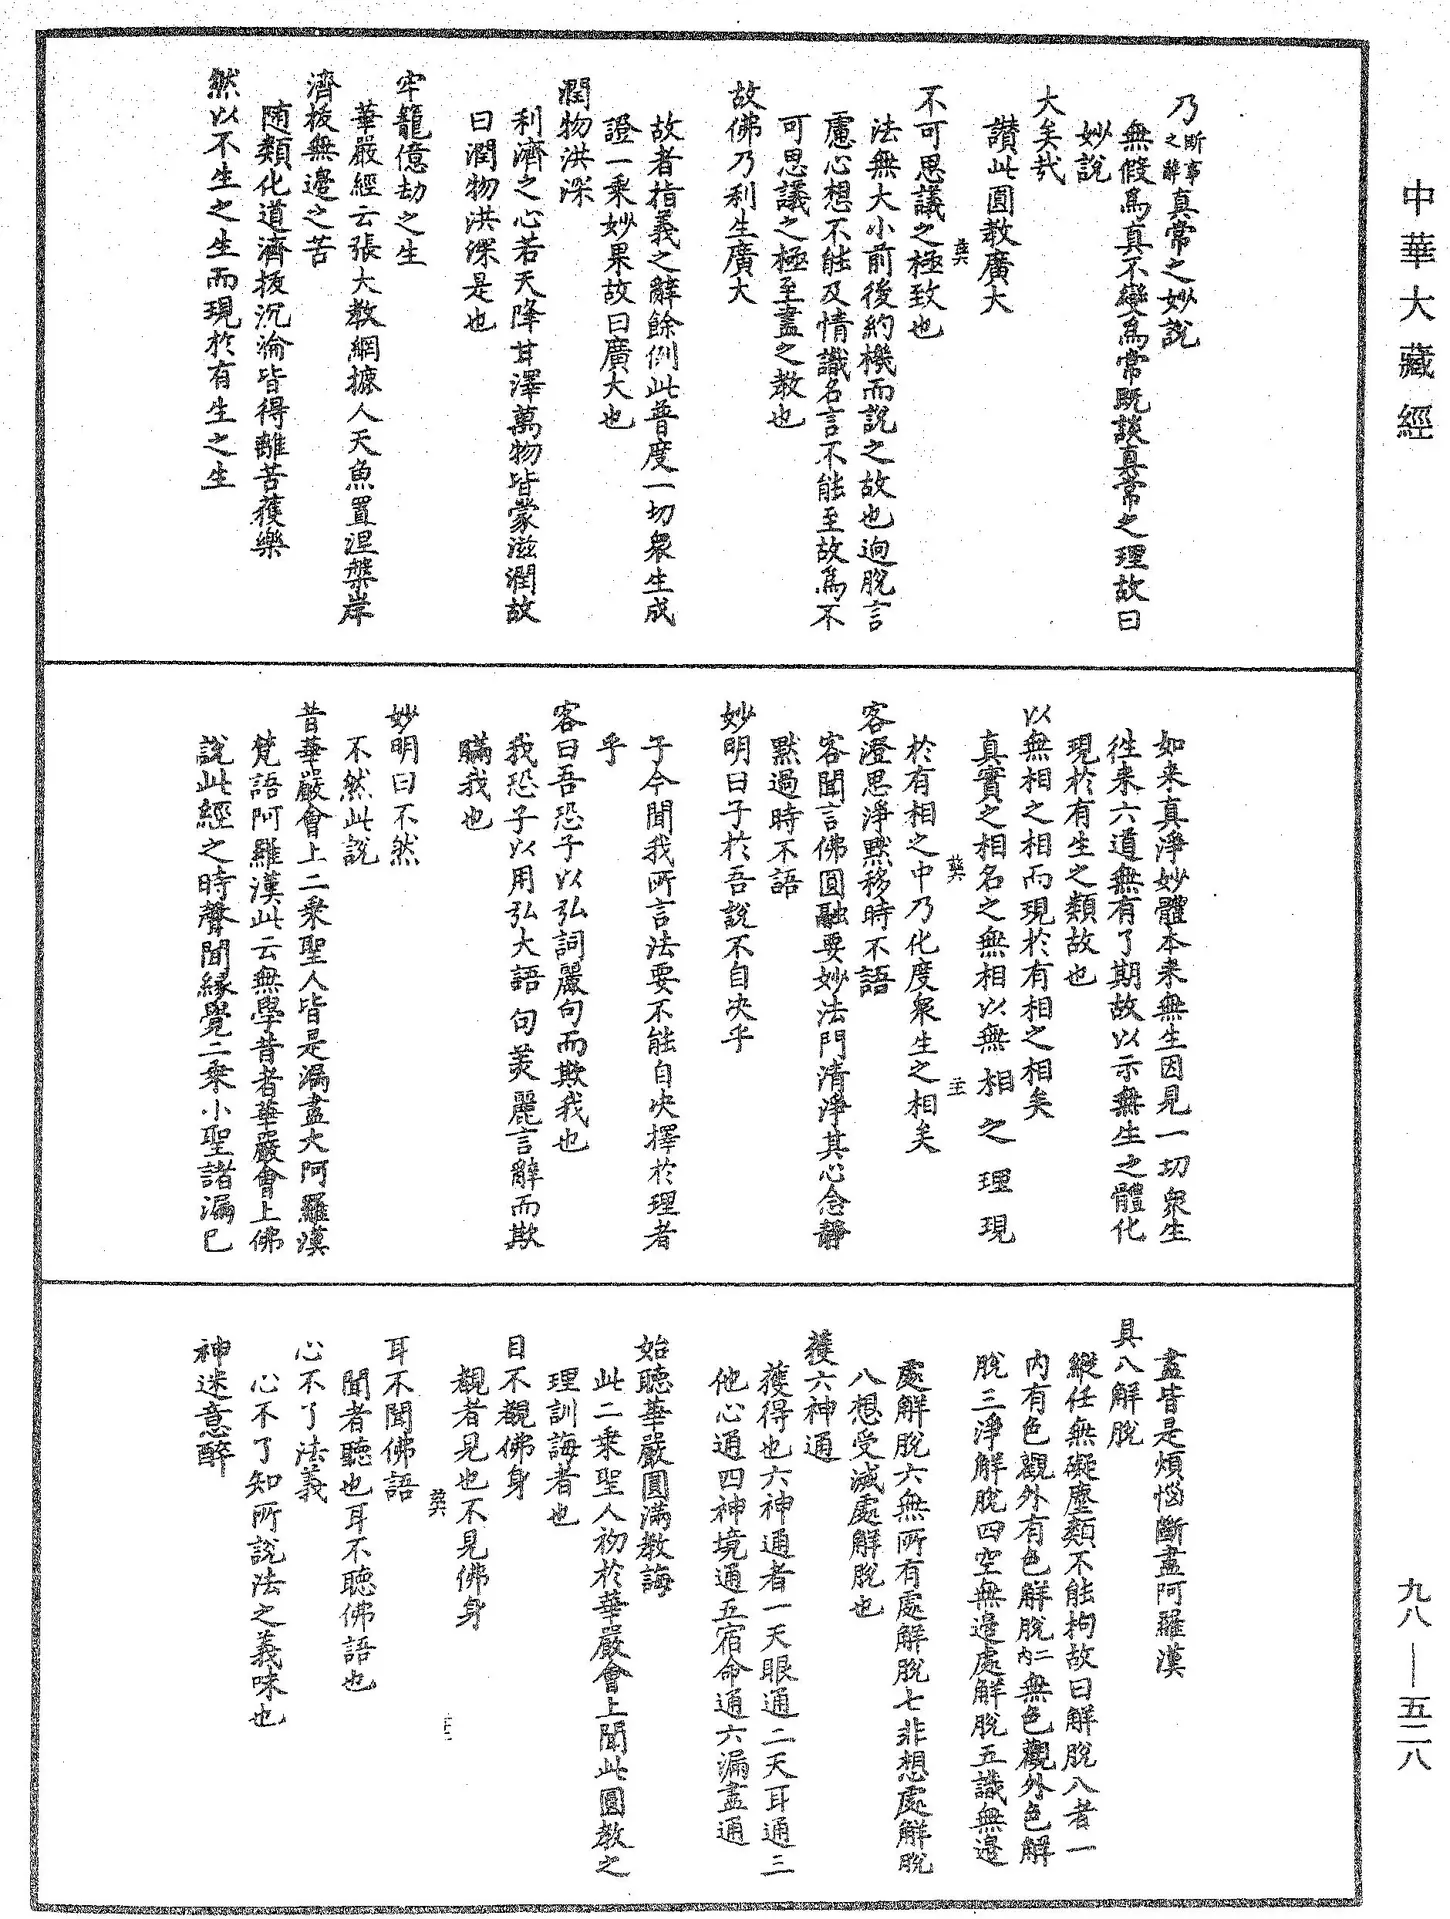 中華大藏經
乃斷事之辭真常之妙說
無假爲真不變爲常既談真常之理故曰
妙說
大矣哉
讚此圓教廣大
不可思議之極致也
法無大小前後約機而說之故也迥脫言
慮心想不能及情識名言不能至故爲不
可思議之極至盡之教也
故佛乃利生廣大
故者指義之辭餘例此普度一切衆生成
證一乘妙果故曰廣大也
潤物洪深
利濟之心若天降甘澤萬物皆蒙滋潤故
曰潤物洪深是也
牢籠億劫之生
華嚴經云張大教網摝人天魚置涅槃岸
濟拔無邊之苦
随類化道濟拔沉淪皆得離苦獲樂
然以不生之生而現於有生之生
如来真淨妙體本来無生因見一切衆生
徃来六道無有了期故以示無生之體化
現於有生之類故也
以無相之相而現於有相之相矣
真實之相名之無相以無相之理現
於有相之中乃化度衆生之相矣
客澄思淨默移時不語
客聞言佛圓融要妙法門清淨其心念靜
默過時不語
妙明曰子於吾說不自决乎
子今聞我所言法要不能自决擇於理者
乎
客曰吾恐子以弘詞麗句而欺我也
我恐子以用弘大語句美麗言辭而欺
瞞我也
妙明曰不然
不然此說
昔華嚴會上二乘聖人皆是漏盡大阿羅漢
梵語阿羅漢此云無學昔者華嚴會上佛
說此經之時聲聞緣覺二乘小聖諸漏已
盡皆是煩惱斷盡阿羅漢
具八解脫
縱任無礙塵類不能拘故曰解脫八者一
内有色觀外有色解脫二内無色觀外色解
脫三淨解脫四空無邊處解脫五識無邊
處解脫六無所有處解脫七非想處解脫
八想受滅處解脫也
獲六神通
獲得也六神通者一天眼通二天耳通三
他心通四神境通五宿命通六漏盡通
始聽華嚴圓滿教誨
此二乘聖人初於華嚴會上聞此圓教之
理訓誨者也
目不覩佛身
覩者見也不見佛身
耳不聞佛語
聞者聽也耳不聽佛語也
心不了法義
心不了知所說法之義味也
神迷意醉
九八——五二八